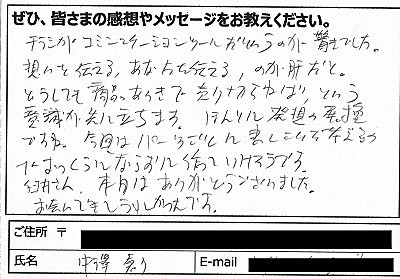 ぜひ、皆さまの感想やメッセージをお教えください。
チラシがコミュニケーションツールだというのが驚きでした。
想いを伝える, あなたを伝える, のが肝だと。
どうしても商品ありきで売り切らねば, という
意識が先に立ちます。ほんとに発想の転換
ですね。今回はパーツごとに書しこんで考えるの
でばっくらにならずに作っていけそうです。
さん, 本日はありがとうございました。
お会いできてうれしかったです。
ご住所 〒
氏名 中澤
E-mail